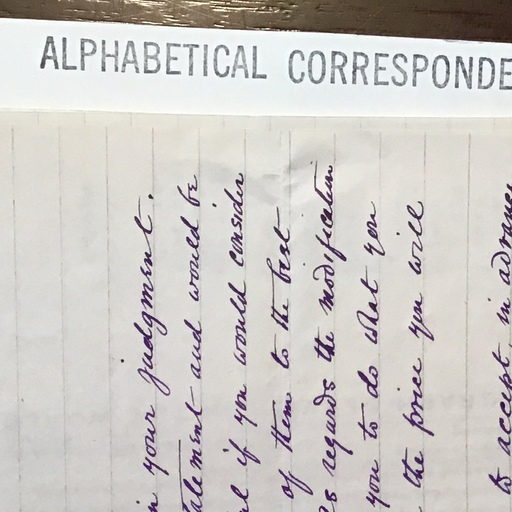 in your judgment.
atement and would be
if you would consider
of them to the best
As regards the modification
you to do what you
the price you will
to accept, in advance
ALPHABETICAL CORRESPONDE